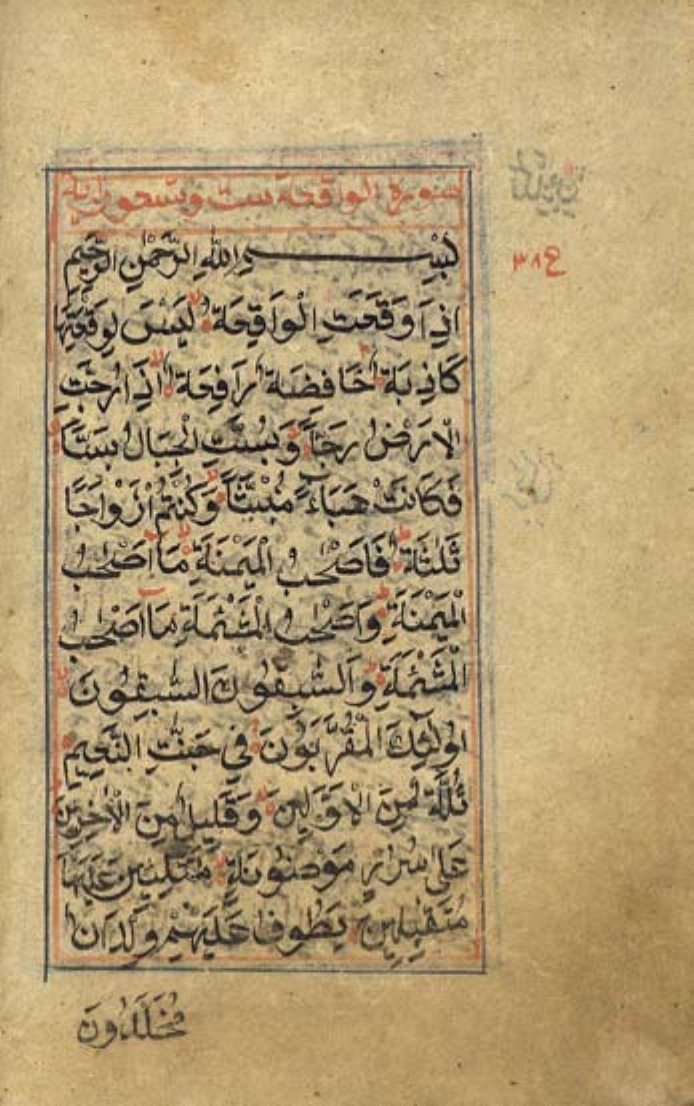 سورة الواقعة ست وتسعون آية
بِسْمِ اللهِ الرَّحْمٰنِ الرَّحِيْمِ
اِذَا وَقَعَتِ الْوَاقِعَةُ لَيْسَ لِوَقْعَتِهَا
كَاذِبَةٌ خَافِضَةٌ رَافِعَةٌ اِذَا رُجَّتِ
الْاَرْضُ رَجًّا وَبُسَّتِ الْجِبَالُ بَسًّا
فَكَانَتْ هَبَاءً مُنْبَثًّا وَكُنْتُمْ اَزْوَاجًا
ثَلٰثَةً فَاَصْحٰبُ الْمَيْمَنَةِ مَا اَصْحٰبُ
الْمَيْمَنَةِ وَاَصْحٰبُ الْمَشْئَمَةِ مَا اَصْحٰبُ
الْمَشْئَمَةِ وَالسّٰبِقُوْنَ السّٰبِقُوْنَ
اُولٰئِكَ الْمُقَرَّبُوْنَ فِيْ جَنّٰتِ النَّعِيْمِ
ثُلَّةٌ مِنَ الْاَوَّلِيْنَ وَقَلِيْلٌ مِنَ الْاٰخِرِيْنَ
عَلٰى سُرُرٍ مَوْضُوْنَةٍ مُتَّكِئِيْنَ عَلَيْهَا
مُتَقٰبِلِيْنَ يَطُوْفُ عَلَيْهِمْ وِلْدَانٌ
مُخَلَّدُوْنَ